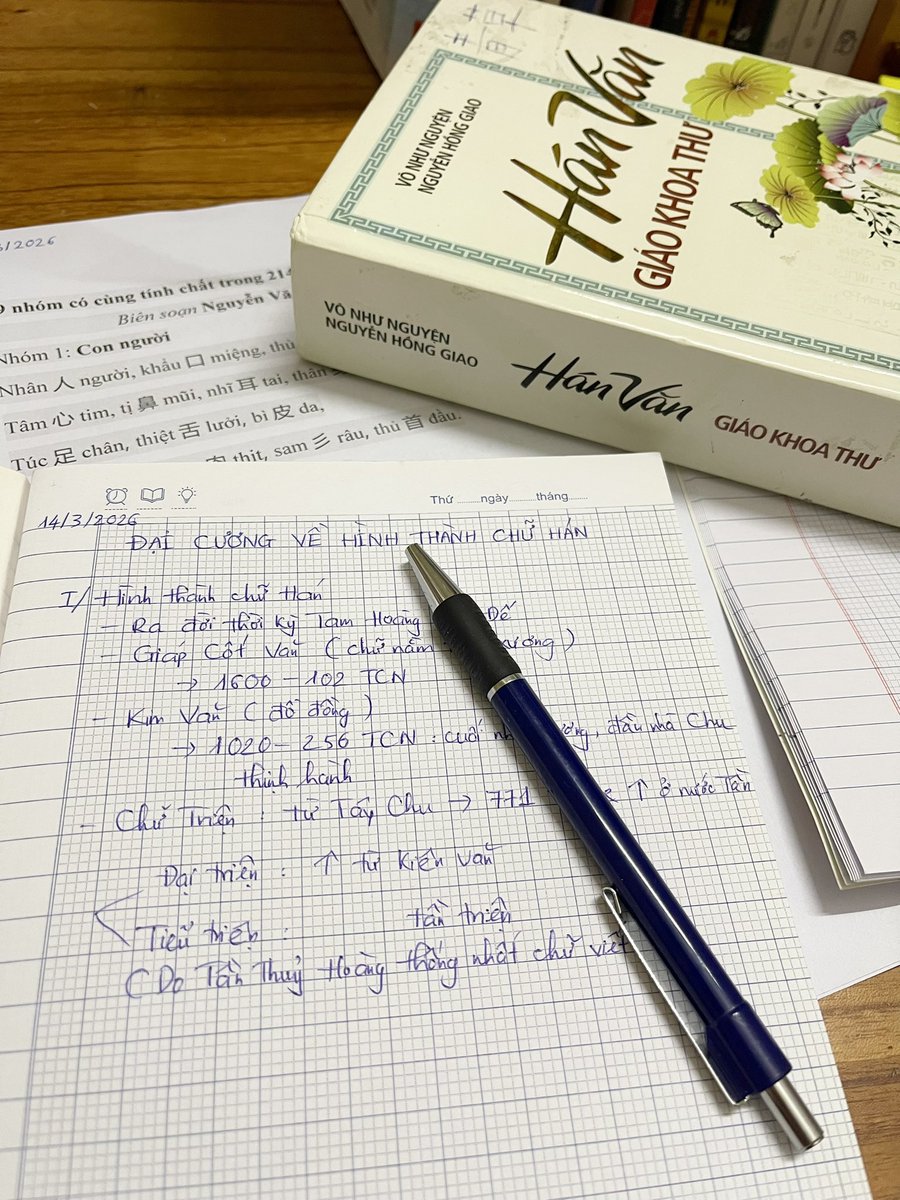 Hán Văn
GIÁO KHOA THƯ
VÕ NHƯ NGUYỆN
NGUYỄN HỒNG GIAO
VÕ NHƯ NGUYỆN
NGUYỄN HỒNG GIAO
Hán Văn
GIÁO KHOA THƯ
/2026
nhóm có cùng tính chất trong 214
Biên soạn Nguyễn
Nhóm 1: Con người
Nhân 人 người, khẩu 口 miệng,
Tâm 心 tim, tị 鼻 mũi, nhĩ 耳 tai, thân
Túc 足 chân, thiệt 舌 lưỡi, bì 皮 da,
thịt, sam 彡 râu, thủ 首 đầu.
Thứ ........ngày.........tháng.......
14/3/2026
ĐẠI CƯƠNG VỀ HÌNH THÀNH CHỮ HÁN
I/ Hình thành chữ Hán
- Ra đời thời kỳ Tam Hoàng Đế
- Giáp Cốt Văn ( chữ nằm xương )
→ 1600 - 102 TCN
- Kim Văn ( đồ đồng )
→ 1020 - 256 TCN : cuối đầu nhà Chu
thịnh hành
- Chữ Triện : từ Tây Chu → 771 ↑ ở nước Tần
Đại triện : ↑ từ Kiến Văn
Tiểu triện : tần triện
( Do Tần Thuỷ Hoàng thống nhất chữ viết